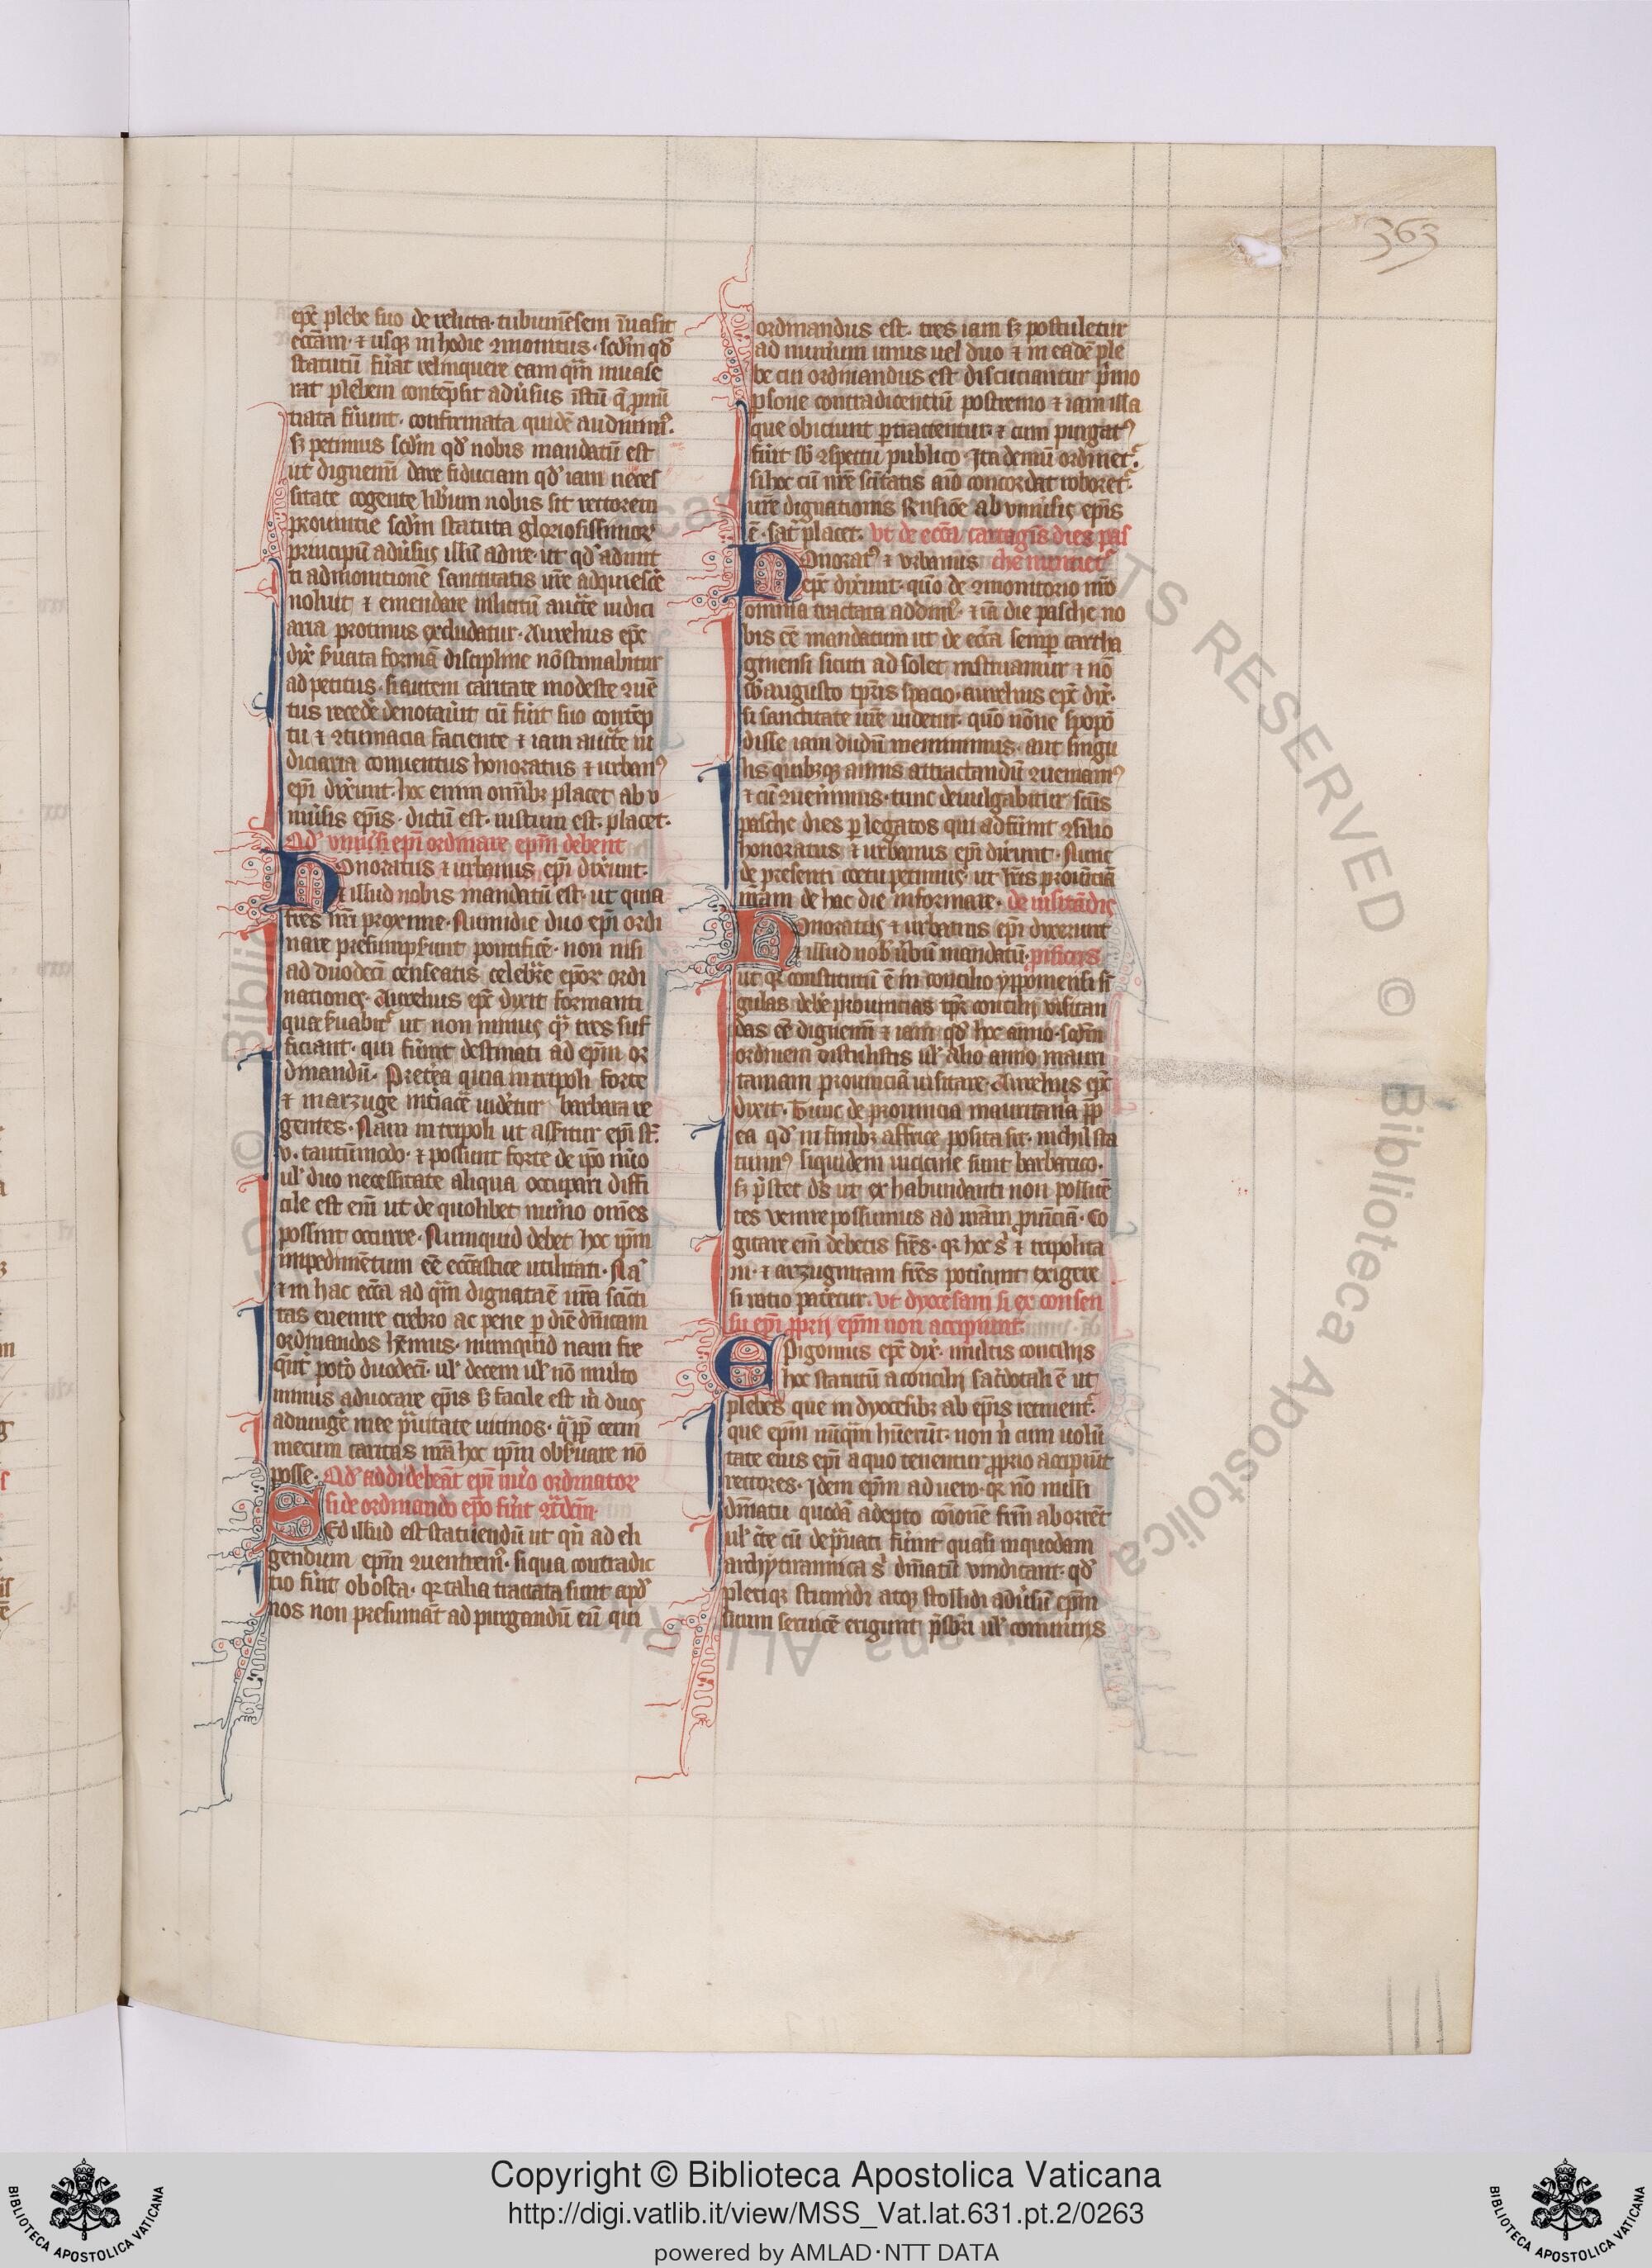 363
epē plebe suo de relicta. tubuniēsem īuasit
eccām. ⁊ usq3 in hodie ꝯmonitus. scdm qd'
statutū fu'at relinquere eam qm̄ inuase
rat plebem contēpsit adu'sus istū q̄ p̄nū
tiata fu'unt. confirmata quidē audiuim'.
s3 petimus scdm qd' nobis mandatū est
ut dignemī dare fiduciam qd' iam neces
sitate cogente lib'um nobis sit rectorem
prouintie scdm statuta gloriosissimor
principū adu'sus illū adire. ut qd' adunt
ti admonitionē sanctitatis ur̄e adquiesce
noluit ⁊ emendare illicitū auctē iudici
aria protinus excludatur. Aurelius epc
dix' s'uata forma discipline nō estimabitur
adpetitus. si autem caritate modeste ꝯuē
tus recede' denotau'it cū fu'it suo contēp
tu ⁊ ꝯtumacia faciente ⁊ iam aucte iu
diciaria conuentus honoratus ⁊ urban'
epi dix'unt. hoc enim omib3 placet ab v
niu'sis epis. dictū est. iustum est. placet.
Qd' vniu'si epi ordinare epm debent
Honoratus ⁊ urbanus epi dix'unt.
⁊ illud nobis mandatū est. ut quia
tres nr̄i proxime. Numidie duo epi ordi
nare presumpserunt pontificē. non nisi
ad duodeci censeatis celebrare epor ordi
nationes. Aurelius epc dixit formanti
qua s'uabit' ut non minus q̄ tres suf
ficiant. qui fu'int destinati ad epm or
dinandū. Pretea quia in tripoli forte
⁊ in arzuge intiace uidetur barbare
gentes. Nam in tripoli ut asseritur epi st̄.
v. tantūmodo. ⁊ possunt forte de ipo nu'o
ul' duo necessitate aliqua occupari diffi
cile est em̄ ut de quolibet num'o omes
possint occurre. Numquid debet hoc ipm
impedimētum eē eccastice utilitati. Nā
⁊ in hac ecca ad qm̄ dignata ē ura sancti
tas euenire crebro ac pene p diē dnicam
ordinandos hemus. nunquid nam fre
quēt' pot'o duodeci. ul' decem ul' nō multo
minus aduocare epis s3 facile est m' duos
adiung'e mee p'uitate uicinos. q̄pp' cerni
mecum caritas ura hoc ipm obs'uare nō
posse. Qd' addi debeāt epi nu'o ordinator
si de ordinando epo fu'it ꝯtradm̄.
Sed illud est statuendū ut qn̄ ad eli
gendum epm ꝯuenirem'. si qua contradic
tio fu'it obosta. qr talia tractata sunt apd'
nos non presumāt ad purgandū eū qui
ordinandus est. tres iam s3 postuletur
ad num'um unus uel duo ⁊ in eadē ple
be cui ordinandus est discuciantur p'mo
psone contradicentiū postremo ⁊ iam illa
que obiciunt ptractentur. ⁊ cum purgat'
fu'it sb ꝯspectu publico. Ita demū ordinet'.
si hoc cū ur̄e scitatis aīo concordat roboret'
ur̄e dignationis rensioē ab vniu'sis epis
ē. sat' placet. Vt de ecca cartagis dies pas
che nuntiet'
Honorat' ⁊ vrbanus
epc dix'unt. quō de ꝯmonitorio nr̄o
omnia tractata addim'. ⁊ ia die pasche no
bis eē mandatum ut de ecca semp cartha
ginensi sicuti ad solet instruamur ⁊ nō
sb augusto tpris spacio. aurelius epc dix'.
si sanctitate ur̄e uidetur. quō nōne spopō
disse iam dudū meminimus. aut singu
lis quibusq3 annis attractandū ꝯueniam'
⁊ cū ꝯuenimus. tunc deuulgabitur scūs
pasche dies p legatos qui adfu'int ꝯsilio
honoratus ⁊ urbanus epi dix'unt. Nunc
de presenti coetu petimus. ut litis prouincia
nr̄am de hac die informare. de uisitādis
Honoratus ⁊ urbanus epi dixerunt
⁊ illud nob' u'bū mandatū.
ut qr constitutū ē in concilio yppomensi si
gulas debē prouincias tpr concilij visitan
das eē dignemī ⁊ iam qd' hoc anno. scdm
ordinem distulistis ul' alio anno mauri
taniam prouinciā uisitare. Aurelius epc
dixit. Tunc de prouincia mauritania pp
ea qd' in finib3 affrice posita sit. nichil sta
tuim' siquidem uicine sunt barbarico.
s3 p'stet ds ut ex habundanti non pollicē
tes venire possimus ad nr̄am prouincia. Co
gitare em̄ debetis fres. qr hoc s' ⁊ tripolita
ni. ⁊ arzugitam fres pot'unt exigere
si ratio pateretur. Vt dyocesani si ex consen
su epi pprij epm non accipiunt.
Epigonius epc dix'. multis concilijs
hoc statutū a concilij sac'dotali ē ut
plebes que in dyocesib3 ab epis retinent'.
que epm nūq̄m hu'erūt. non n' cum uolū
tate eius epi a quo tenentur pprio accipiūt
rectores. Idem epm ad uero. qr nō nulli
dn̄atu quodā adepto coionē frm aborrēt
ul' c'te cū dep'uati fu'int quasi in quodam
archytirannica s' dn̄atū vindicant. qd'
pleriq3 stumidi atq3 stollidi adu'sū epm
suum seruicē erigunt p'sbri ul' conuiuijs
Copyright © Biblioteca Apostolica Vaticana
http://digi.vatlib.it/view/MSS_Vat.lat.631.pt.2/0263
powered by AMLAD·NTT DATA
BIBLIOTECA APOSTOLICA VATICANA
BIBLIOTECA APOSTOLICA VATICANA